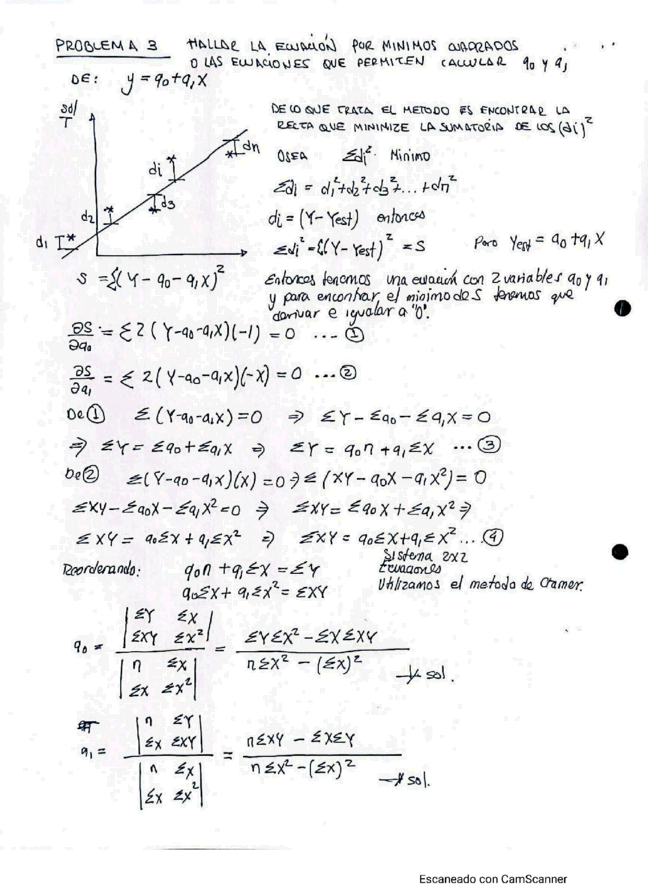 PROBLEMA 3   HALLAR LA ECUACIÓN POR MINIMOS CUADRADOS
O LAS ECUACIONES QUE PERMITEN CALCULAR a0 y a1
DE:   y = a0+a1X
Sd/T
DE LO QUE TRATA EL METODO ES ENCONTRAR LA
RECTA QUE MINIMIZE LA SUMATORIA DE LOS (di)²
OSEA   Σdi² Minimo
Σdi = d1²+d2²+d3²+... +dn²
di = (Y-Yest) entonces
Σdi²=Σ(Y-Yest)² = S   Pero Yest = a0+a1X
d1 d2 d3 di dn
S = Σ(Y-a0-a1X)²
Entonces tenemos una ecuación con 2 variables a0 y a1
y para encontrar el minimo de S tenemos que
derivar e igualar a "0".
∂S/∂a0 = Σ2(Y-a0-a1X)(-1) = 0 .... ①
∂S/∂a1 = Σ 2(Y-a0-a1X)(-X) = 0 ...②
De ①   Σ(Y-a0-a1X)=0 ⇒ ΣY-Σa0-Σa1X=0
⇒ ΣY= Σa0+Σa1X ⇒ ΣY= a0n+a1ΣX ...③
De②   Σ(Y-a0-a1X)(X)=0⇒Σ(XY-a0X-a1X²)=0
ΣXY-Σa0X-Σa1X²=0 ⇒ ΣXY=Σa0X+Σa1X²⇒
ΣXY= a0ΣX+a1ΣX² ⇒ ΣXY= a0ΣX+a1ΣX²...④
Reordenando:   a0n+a1ΣX=ΣY
a0ΣX+a1ΣX²=ΣXY
Sistema 2x2
Ecuaciones
Utilizamos el metodo de Cramer.
a0 = |ΣY ΣX; ΣXY ΣX²| / |n ΣX; ΣX ΣX²| = (ΣYΣX²-ΣXΣXY) / (nΣX²-(ΣX)²) → sol.
a1 = |n ΣY; ΣX ΣXY| / |n ΣX; ΣX ΣX²| = (nΣXY-ΣXΣY) / (nΣX²-(ΣX)²) → sol.
Escaneado con CamScanner